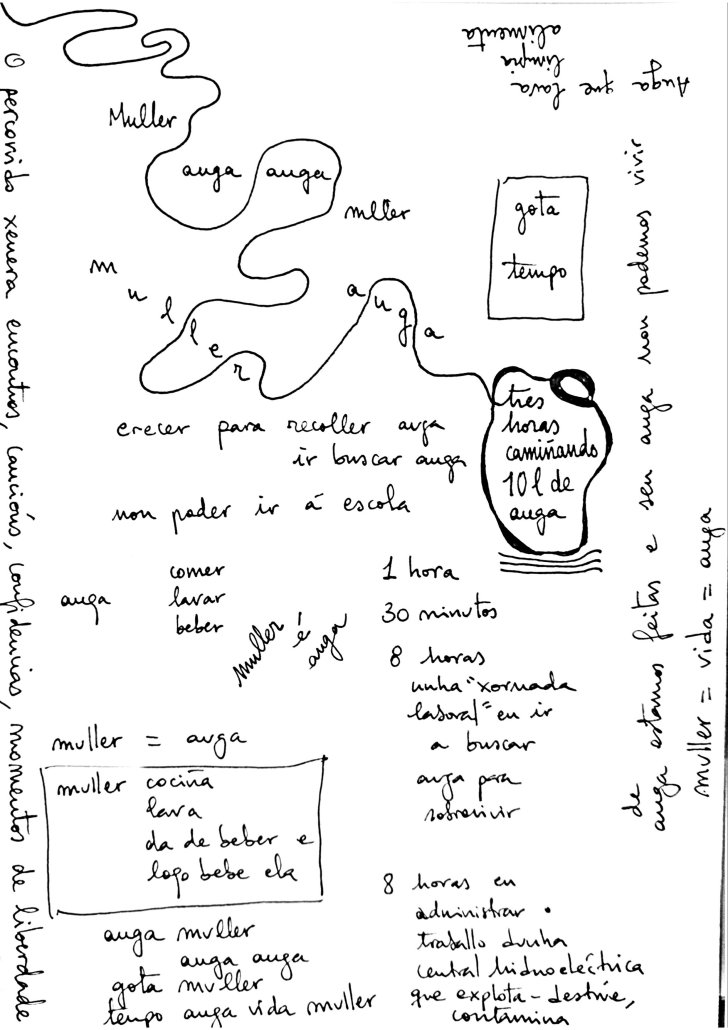 Auga que lava
limpia
alimenta
O percorrido xenera encontros, cancións, confidencias, momentos de liberdade
Muller
auga auga
mller
muller
auga
gota
tempo
tres
horas
camiñando
10 l de
auga
crecer para recoller auga
ir buscar auga
non poder ir á escola
auga
comer
lavar
beber
muller
é
auga
1 hora
30 minutos
8 horas
unha "xornada
laboral" en ir
a buscar
auga para
sobrevivir
muller = auga
muller cociña
lava
da de beber e
logo bebe ela
auga muller
auga auga
gota muller
tempo auga vida muller
8 horas en
administrar .
traballo dunha
central hidroeléctrica
que explota - destrúe,
contamina
de
auga estamos feitas e sen auga non podemos vivir
muller = vida = auga